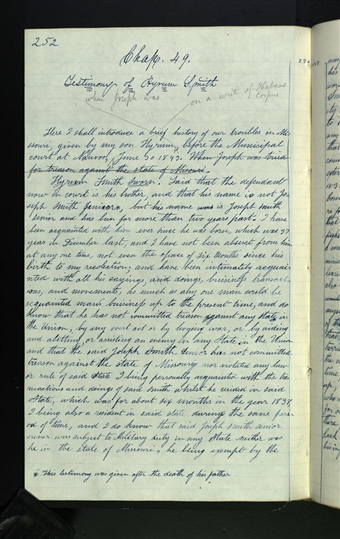 252
Chap. 49.
Testimony of Hyrum Smith
when Joseph was
on a writ of Habeas
Corpus
Here I shall introduce a brief history of our troubles in Mis-
souri, given by my son Hyrum, before the Municipal
court at Nauvoo, June 30 1843. When Joseph was tried
for treason against the state of Missouri.
Hyrum Smith sworn. Said that the defendant
now in court is his brother, and that his name is not Jo-
seph Smith junior, but his name is Joseph Smith
senior and has been for more than two years past. I have
been acquainted with him ever since he was born, which was 37
years in December last, and I have not been absent from him
at any one time, not even the space of six months since his
birth to my recollection; and have been intimately acquain-
ted with all his sayings, and doings, business transac-
tions, and movements; as much as any one man could be
acquainted mans business up to the present time, and do
know that he has not committed treason against any state in
the Union, by any overt act or by levying war, or by aiding
and abetting, or assisting an enemy in any State in the Union
and that the said Joseph Smith Senior has not committed
treason against the State of Missouri nor violated any law
or rule of said State I being personally acquainted with the
transactions and doings of said Smith whilst he resided in said
State, which was for about six months in the year 1838,
I being also a resident in said state during the same peri-
od of time, and I do know that said Joseph Smith senior
never was subject to military duty in any State neither was
he in the State of Missouri, he being exempt by the
* This testimony was given after the death of his father